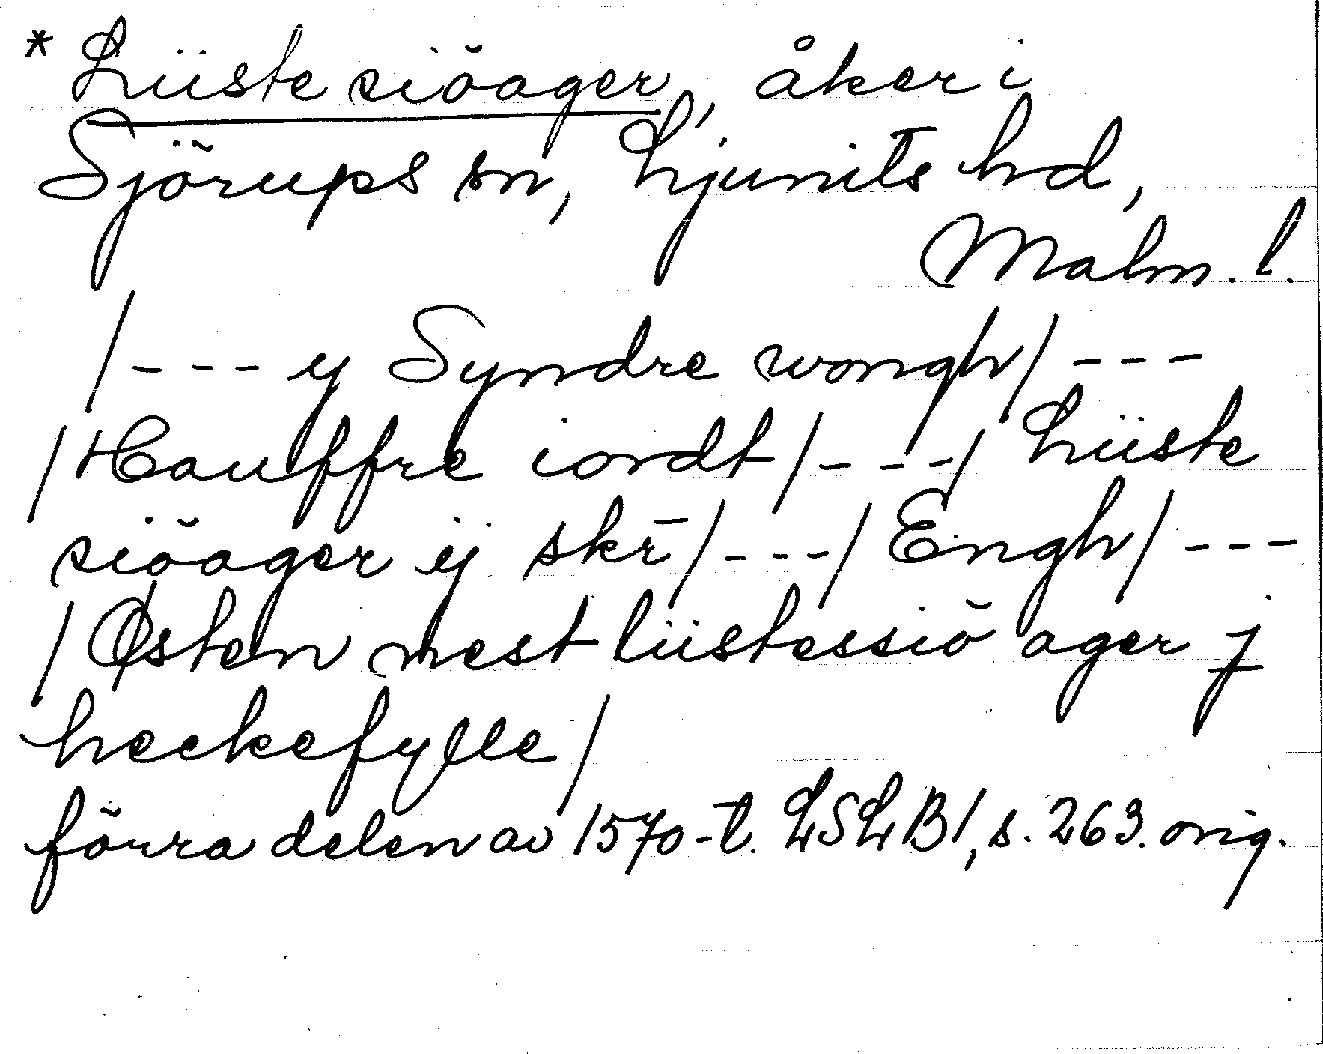 * Liiste siöager, åker i
Sjörups sn, Ljunits hd,
Malm. l.
/--- y Syndre wongh/ ---
/Hauffre iordt/---/ Liiste
siöager ij skr̄/---/ Engh/---
/Østen nest liistessiö ager j
heckefylle/
förra delen av 1570-t. LSLB1, s. 263. orig.